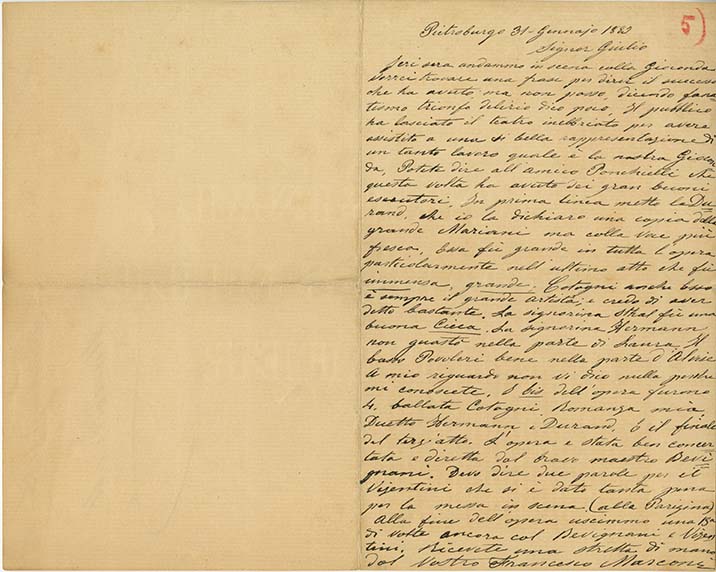 5)
Pietroburgo 31-Gennajo 1883
Signor Giulio
Ieri sera andammo in scena colla Gioconda
Vorrei trovare una frase per dirvi il successo
che ha avuto ma non posso, dicendo fana-
tismo trionfo delirio dico poco. Il pubblico
ha lasciato il teatro inebbriato per avere
assistito a una sì bella rappresentazione di
un tanto lavoro quale è la nostra Giocon
da, Potete dire all'amico Ponchielli che
questa volta ha avuto dei gran buoni
esecutori. In prima linea metto la Du
rand, che io la dichiaro una copia della
grande Mariani ma colla voce più
fresca. Essa fù grande in tutta l'opera
particolarmente nell'ultimo atto che fù
immensa, grande, Cotogni anche esso
è sempre il grande artista, e credo di aver
detto bastante. La signorina Sthal fù una
buona Cieca. La signorina Hermann
non guastò nella parte di Laura. Il
basso Povoleri bene nella parte d'Alvise
A mio riguardo non vi dico nulla perchè
mi conoscete. I bis dell'opera furono
4. ballata Cotogni, Romanza mia,
Duetto Hermann e Durand, e il finale
del terz'atto. L'opera è stata ben concer
tata e diretta dal bravo maestro Bevi
gnani. Devo dire due parole per il
Vizentini che si è dato tanta pena
per la messa in scena (alla Parigina)
Alla fine dell'opera uscimmo una 15na
di volte ancora col Bevignani e Vizen
tini. Ricevete una stretta di mano
dal Vostro Francesco Marconi